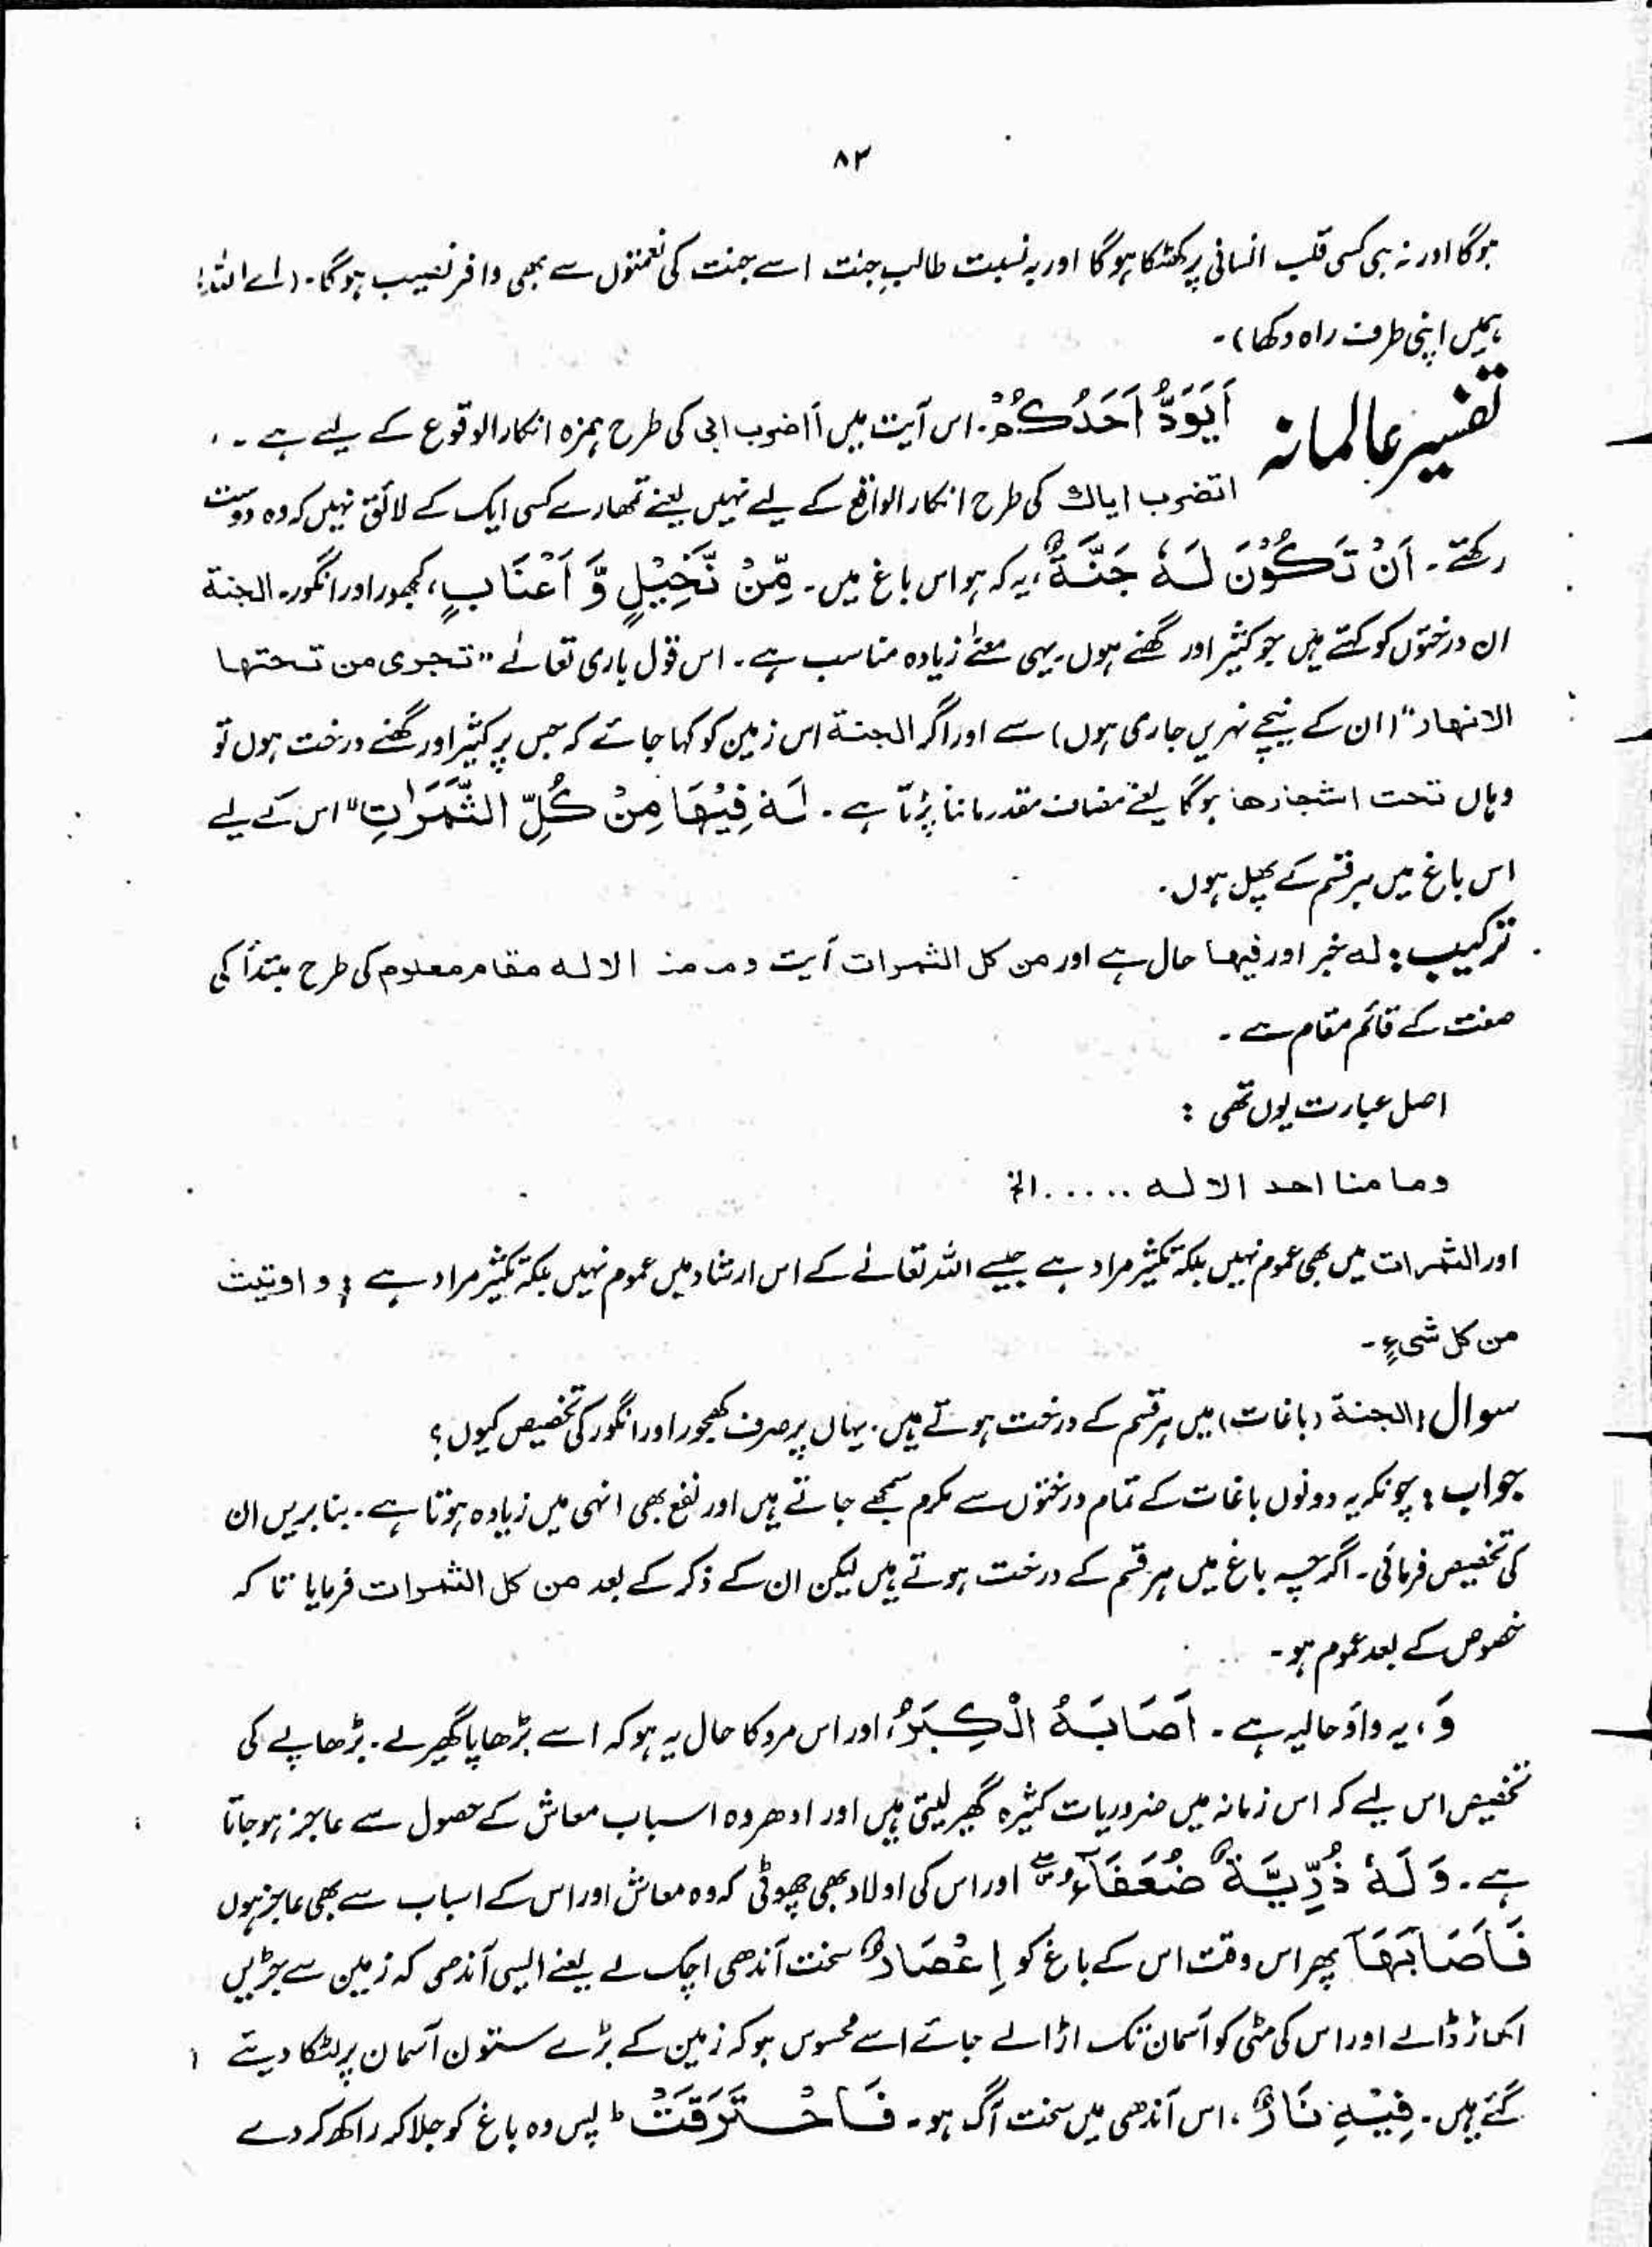 ۸۲
ہوگا اور نہ ہی کسی قلب انسانی پر کھٹکا ہوگا اور بہ نسبت طالبِ جنت اسے جنت کی نعمتوں سے بھی وافر نصیب ہوگا۔ (اے اللہ!
ہمیں اپنی طرف راہ دکھا)۔
تفسیر عالمانہ اَیَوَدُّ اَحَدُکُمْ۔ اس آیت میں أاضرب ابی کی طرح ہمزہ انکار الوقوع کے لیے ہے۔
اتضرب اباك کی طرح انکار الواقع کے لیے نہیں یعنے تمھارے کسی ایک کے لائق نہیں کہ وہ دوست
رکھتے۔ اَنْ تَکُوْنَ لَهٗ جَنَّةٌ، یہ کہ ہو اس باغ میں۔ مِّنْ نَّخِیْلٍ وَّ اَعْنَابٍ، کھجور اور انگور۔ الجنة
ان درختوں کو کہتے ہیں جو کثیر اور گھنے ہوں۔ یہی معنےٰ زیادہ مناسب ہے۔ اس قول باری تعالےٰ "تجری من تحتها
الانھار" (ان کے نیچے نہریں جاری ہوں) سے اور اگر الجنة اس زمین کو کہا جائے کہ جس پر کثیر اور گھنے درخت ہوں تو
وہاں تحت اشجارھا ہوگا یعنے مضاف مقدر ماننا پڑتا ہے۔ لَهٗ فِیْهَا مِنْ کُلِّ الثَّمَرٰتِ" اس کے لیے
اس باغ میں ہر قسم کے پھل ہوں۔
ترکیب: له خبر اور فیھا حال ہے اور من کل الثمرات آیت وما منا الا له مقام معلوم کی طرح مبتدأ کی
صفت کے قائم مقام ہے۔
اصل عبارت یوں تھی :
وما منا احد الا له ..... الخ
اور الثمرات میں بھی عموم نہیں بلکہ تکثیر مراد ہے جیسے اللہ تعالےٰ کے اس ارشاد میں عموم نہیں بلکہ تکثیر مراد ہے : و اوتیت
من کل شیءٍ۔
سوال : الجنة (باغات) میں ہر قسم کے درخت ہوتے ہیں۔ یہاں پر صرف کھجور اور انگور کی تخصیص کیوں؟
جواب : چونکہ یہ دونوں باغات کے تمام درختوں سے مکرم سمجھے جاتے ہیں اور نفع بھی انہی میں زیادہ ہوتا ہے۔ بنا بریں ان
کی تخصیص فرمائی۔ اگرچہ باغ میں ہر قسم کے درخت ہوتے ہیں لیکن ان کے ذکر کے بعد من کل الثمرات فرمایا تاکہ
خصوص کے بعد عموم ہو۔
وَ، یہ واؤ حالیہ ہے۔ اَصَابَهُ الْکِبَرُ، اور اس مرد کا حال یہ ہو کہ اسے بڑھاپا گھیر لے۔ بڑھاپے کی
تخصیص اس لیے کہ اس زمانہ میں ضروریات کثیرہ گھیر لیتی ہیں اور ادھر وہ اسباب معاش کے حصول سے عاجز ہو جاتا
ہے۔ وَ لَهٗ ذُرِّیَّةٌ ضُعَفَآءُ اور اس کی اولاد بھی چھوٹی کہ وہ معاش اور اس کے اسباب سے بھی عاجز ہوں
فَاَصَابَهَآ پھر اس وقت اس کے باغ کو اِعْصَارٌ سخت آندھی اچک لے یعنے ایسی آندھی کہ زمین سے جڑیں
اکھاڑ ڈالے اور اس کی مٹی کو آسمان تک اڑالے جائے اسے محسوس ہو کہ زمین کے بڑے ستون آسمان پر لٹکا دیئے
گئے ہیں۔ فِیْهِ نَارٌ، اس آندھی میں سخت آگ ہو۔ فَاحْتَرَقَتْ ؕ پس وہ باغ کو جلا کر راکھ کر دے